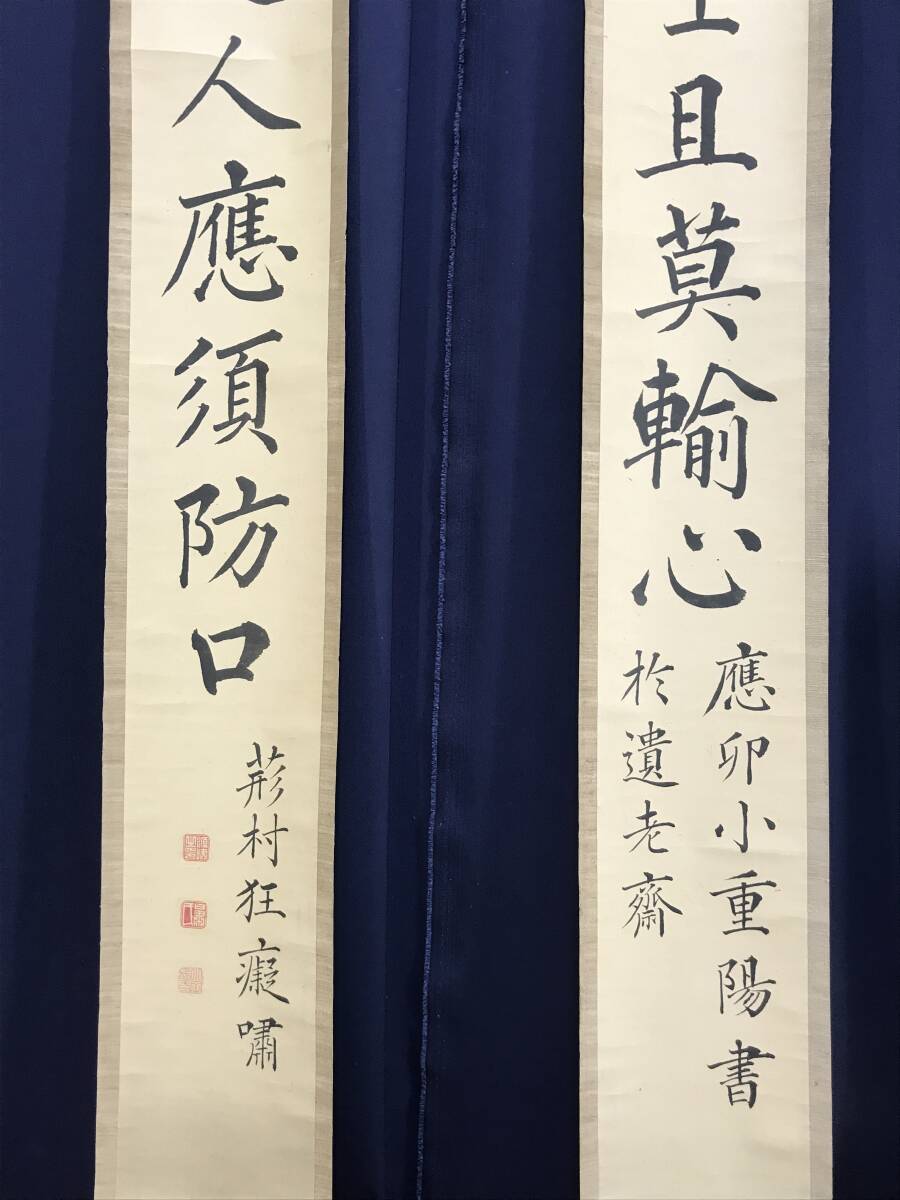 且莫輸心
應卯小重陽書
於遺老齋
人應須防口
荪村狂癡嘯